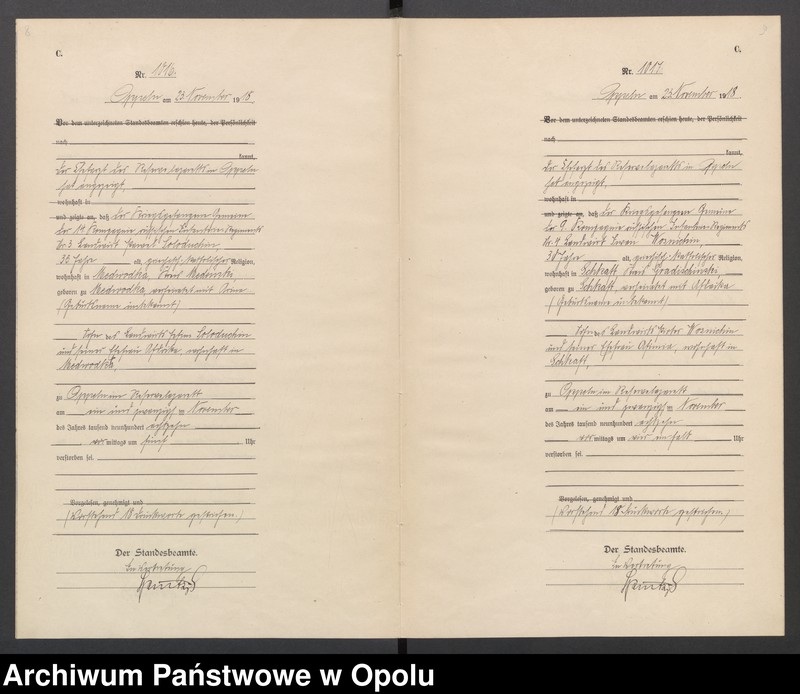 C.
Nr. 1016.
Oppeln am 23 November 1918.
Vor dem unterzeichneten Standesbeamten erschien heute, der Persönlichkeit
nach
kannt,
der Chefarzt des Reservelazaretts in Oppeln
hat angezeigt,
wohnhaft in
und zeigte an, daß der Kriegsgefangene Gemeine
der 14 Kompagnie russischen Infanterie Regiments
Nr 3 Landwirt Soloduchin,
35 Jahre alt, griechisch katholischer Religion,
wohnhaft in Medwodka,
geboren zu Medwodka, verheiratet mit
(Geburtsname unbekannt)
Sohn des Landwirts Soloduchin
und seiner Ehefrau wohnhaft in
Medwodka,
zu Oppeln im Reservelazarett
am ein und zwanzigsten November
des Jahres tausend neunhundert achtzehn
vormittags um fünf Uhr
verstorben sei.
Vorgelesen, genehmigt und
(Vorstehend 18 Druckworte gestrichen.)
Der Standesbeamte.
In Vertretung
C.
Nr. 1017.
Oppeln am 23 November 1918
Vor dem unterzeichneten Standesbeamten erschien heute, der Persönlichkeit
nach
kannt,
der Chefarzt des Reservelazaretts in Oppeln
hat angezeigt,
wohnhaft in
und zeigte an, daß der Kriegsgefangene Gemeine
der 9 Kompagnie russischen Infanterie Regiments
Nr 4 Landwirt Iwan Wosnichin,
30 Jahre alt, griechisch katholischer Religion,
wohnhaft in
geboren zu verheiratet mit
(Geburtsname unbekannt)
Sohn des Landwirts Wosnichin
und seiner Ehefrau wohnhaft in
zu Oppeln im Reservelazarett
am ein und zwanzigsten November
des Jahres tausend neunhundert achtzehn
vormittags um Uhr
verstorben sei.
Vorgelesen, genehmigt und
(Vorstehend 18 Druckworte gestrichen.)
Der Standesbeamte.
In Vertretung
Archiwum Państwowe w Opolu